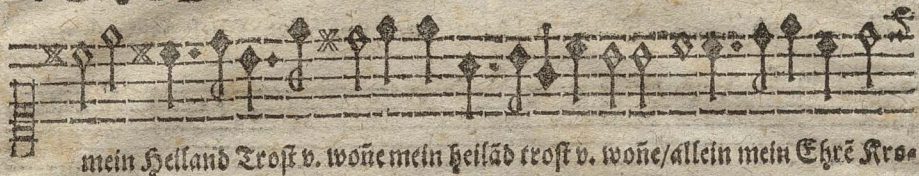 mein Heiland Trost v. woñe mein heilãd trost v. woñe/allein mein Ehrẽ Kro-